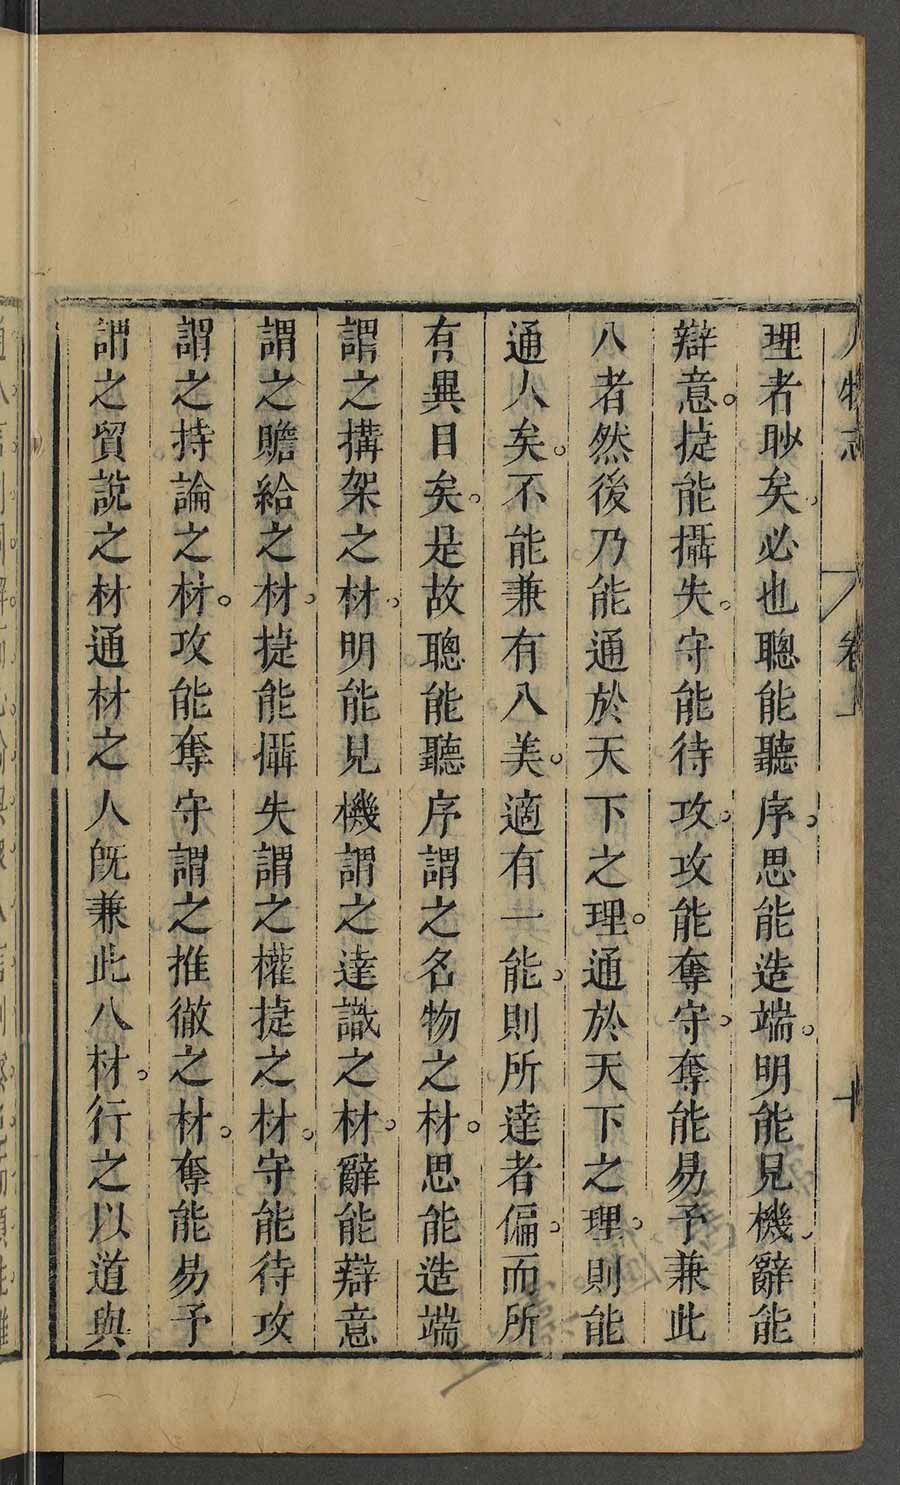 人物志 卷上 十
理者眇矣必也聰能聽序思能造端明能見機辭能
辯意捷能攝失守能待攻攻能奪守奪能易予兼此
八者然後乃能通於天下之理通於天下之理則能
通人矣不能兼有八美適有一能則所達者偏而所
有異目矣是故聰能聽序謂之名物之材思能造端
謂之搆架之材明能見機謂之達識之材辭能辯意
謂之贍給之材捷能攝失謂之權捷之材守能待攻
謂之持論之材攻能奪守謂之推徹之材奪能易予
謂之貿說之材通材之人旣兼此八材行之以道與